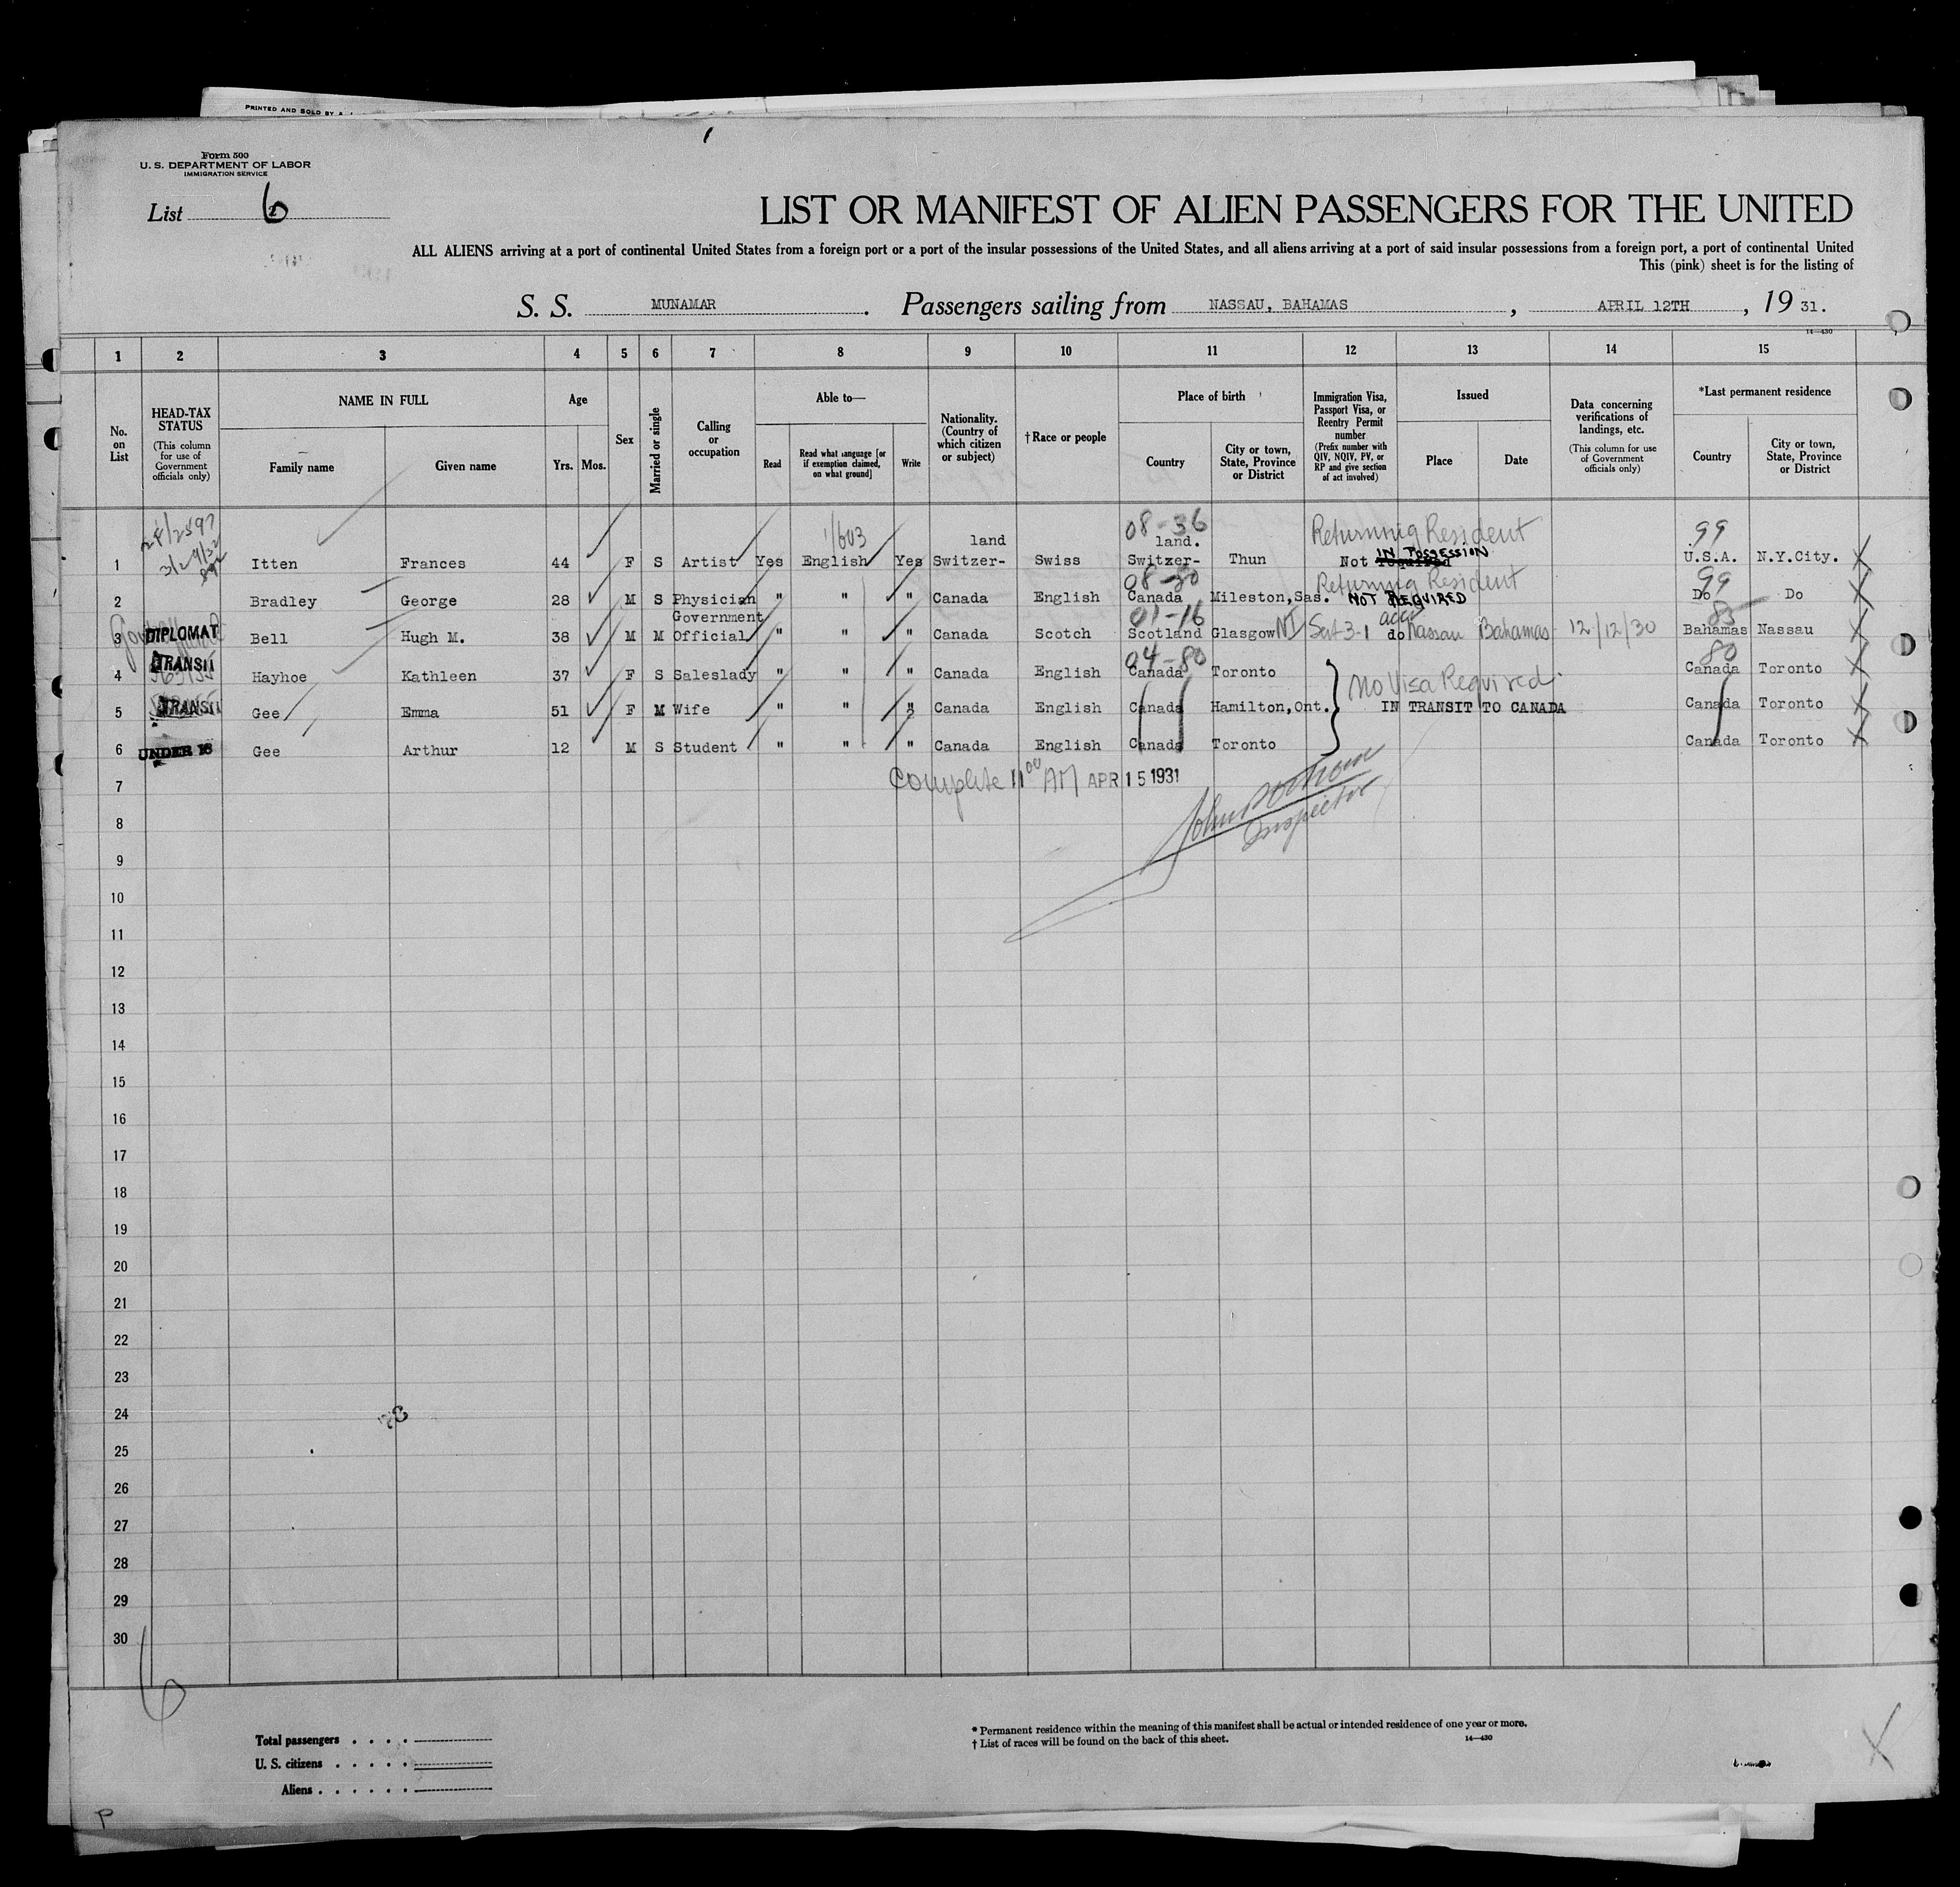 PRINTED AND SOLD BY A
Form 500
U. S. DEPARTMENT OF LABOR
IMMIGRATION SERVICE
List 6
LIST OR MANIFEST OF ALIEN PASSENGERS FOR THE UNITED
ALL ALIENS arriving at a port of continental United States from a foreign port or a port of the insular possessions of the United States, and all aliens arriving at a port of said insular possessions from a foreign port, a port of continental United
This (pink) sheet is for the listing of
S. S. MUNAMAR. Passengers sailing from NASSAU, BAHAMAS, APRIL 12TH, 19 31.
14—430
1 2 3 4 5 6 7 8 9 10 11 12 13 14 15
No. on List
HEAD-TAX STATUS (This column for use of Government officials only)
NAME IN FULL
Family name Given name
Age
Yrs. Mos.
Sex
Married or single
Calling or occupation
Able to—
Read
Read what language [or if exemption claimed, on what ground]
Write
Nationality. (Country of which citizen or subject)
†Race or people
Place of birth
Country
City or town, State, Province or District
Immigration Visa, Passport Visa, or Reentry Permit number (Prefix number with QIV, NQIV, PV, or RP and give section of act involved)
Issued
Place Date
Data concerning verifications of landings, etc. (This column for use of Government officials only)
*Last permanent residence
Country
City or town, State, Province or District
1/603 08-36 Returning Resident 99
land land. IN POSSESSION
1 Itten Frances 44 F S Artist Yes English Yes Switzer- Swiss Switzer- Thun Not required U.S.A. N.Y.City.
Returning Resident 99
2 Bradley George 28 M S Physician " " " Canada English Canada Mileston,Sas. NOT REQUIRED Do Do
Government 01-16
3 DIPLOMAT Bell Hugh M. 38 M M Official " " " Canada Scotch Scotland Glasgow Sect 3-1 do Nassau Bahamas 12/12/30 Bahamas Nassau
04-80 80
4 TRANSIT Hayhoe Kathleen 37 F S Saleslady " " " Canada English Canada Toronto Canada Toronto
No Visa Required
5 TRANSIT Gee Emma 51 F M Wife " " " Canada English Canada Hamilton,Ont. IN TRANSIT TO CANADA Canada Toronto
6 UNDER 16 Gee Arthur 12 M S Student " " " Canada English Canada Toronto Canada Toronto
7 Complete 11 00 AM APR 15 1931
8 Inspector
9
10
11
12
13
14
15
16
17
18
19
20
21
22
23
24
25
26
27
28
29
30
6
Total passengers
U. S. citizens
Aliens
* Permanent residence within the meaning of this manifest shall be actual or intended residence of one year or more.
† List of races will be found on the back of this sheet.
14—430
P